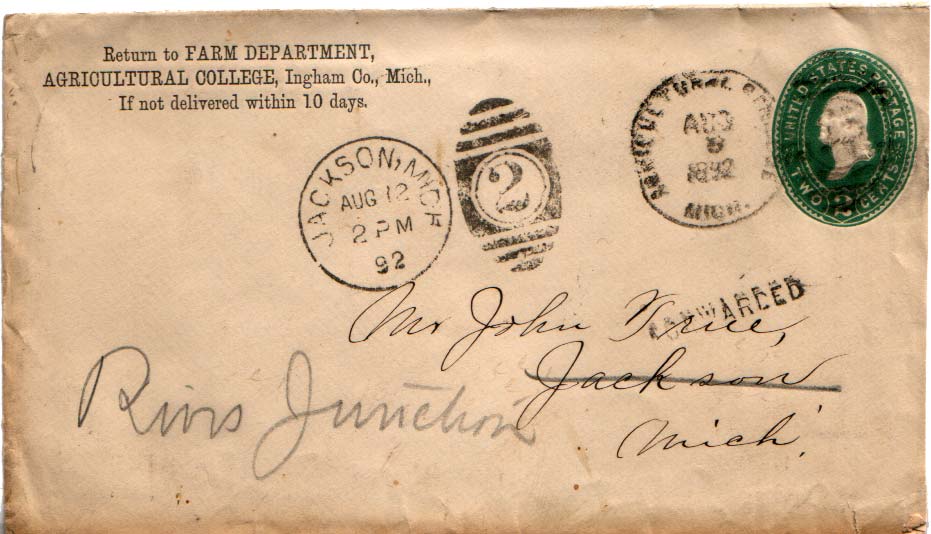 Return to FARM DEPARTMENT,
AGRICULTURAL COLLEGE, Ingham Co., Mich.,
If not delivered within 10 days.
JACKSON, MICH
AUG 12
2 PM
92
2
AGRICULTURAL COLLEGE
AUG
1892
MICH.
UNITED STATES POSTAGE
TWO CENTS
2
FORWARDED
Mr John
Jackson
Mich.
Rivs Junction